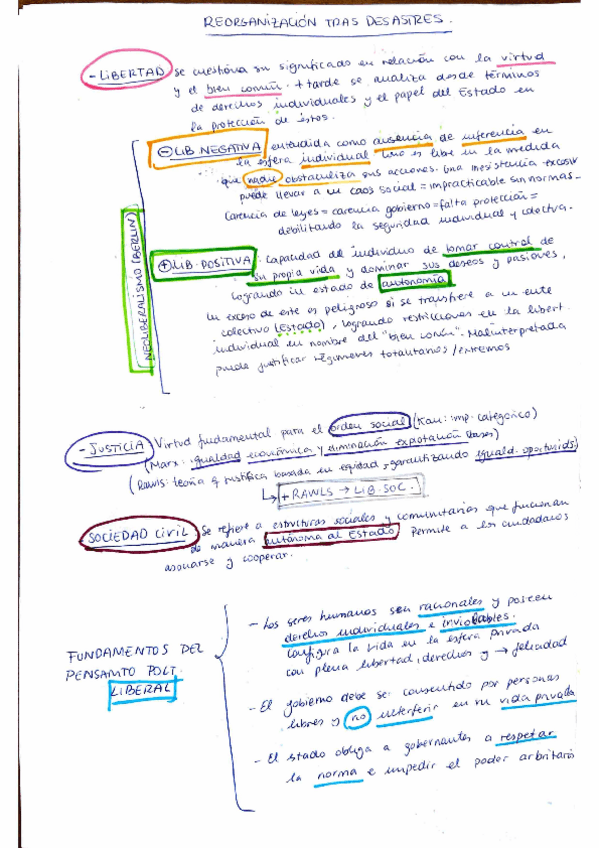 REORGANIZACIÓN TRAS DESASTRES.
- LIBERTAD se cuestiona su significado en relación con la virtud
y el bien común. + tarde se analiza desde términos
de derechos individuales y el papel del Estado en
la protección de éstos.
NEOLIBERALISMO (BERLIN)
⊖ LIB. NEGATIVA entendida como ausencia de inferencia en
la esfera individual. Uno es libre en la medida
que nadie obstaculiza sus acciones. Una inexistencia
puede llevar a un caos social = impracticable sin normas -
carencia de leyes = carencia gobierno = falta protección =
debilitando la seguridad individual y colectiva.
⊕ LIB. POSITIVA: capacidad del individuo de tomar control de
su propia vida y dominar sus deseos y pasiones,
logrando un estado de autonomía
Un exceso de este es peligroso si se transfiere a un ente
colectivo (Estado), logrando restricciones en la libert.
individual en nombre del "bien común". Malinterpretada
puede justificar regímenes totalitarios / extremos
- JUSTICIA Virtud fundamental para el orden social (Kan: imp. categórico)
(Marx: igualdad económica y eliminación explotación clases)
(Rawls: teoría q justifica basada en equidad, garantizando iguald. oportunids)
↳ + RAWLS → LIB. SOC.
SOCIEDAD CIVIL Se refiere a estructuras sociales y comunitarias que funcionan
de manera autónoma al Estado. Permite a los ciudadanos
asociarse y cooperar.
FUNDAMENTOS DEL
PENSAMTO POLT.
LIBERAL
- Los seres humanos son racionales y poseen
derechos individuales e inviolables.
Configura la vida en la esfera privada
con plena libertad, derechos y → felicidad
- El gobierno debe ser consentido por personas
libres y no interferir en su vida privada
- El stado obliga a gobernantes a respetar
la norma e impedir el poder arbitrario